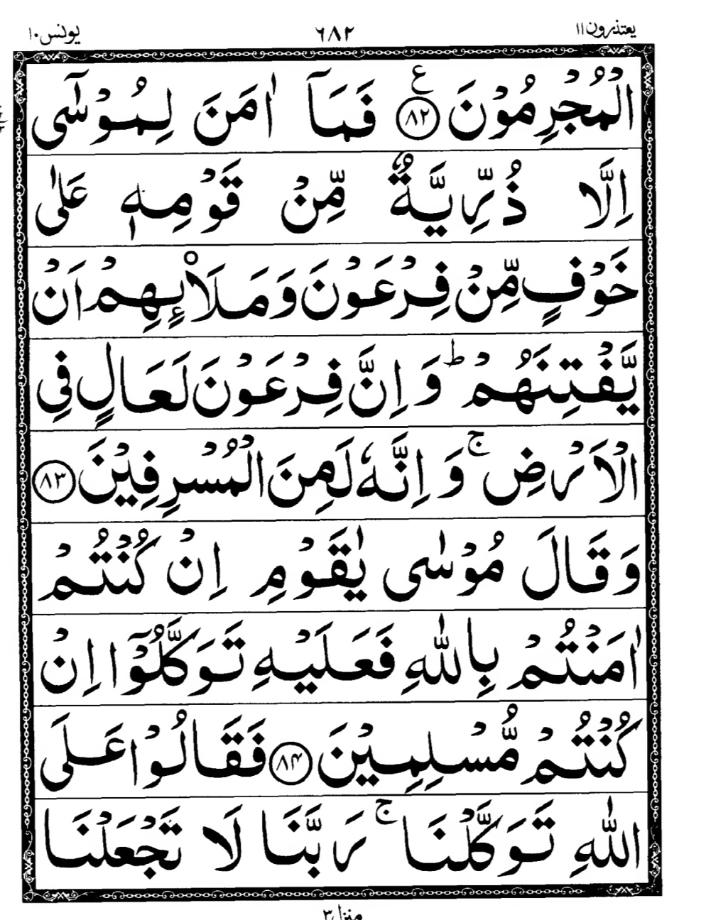 يعتذرون ١١ ٦٨٢ يونس ١٠
الْمُجْرِمُوْنَ ﴿٨٢﴾ ع فَمَاۤ اٰمَنَ لِمُوْسٰۤى
اِلَّا ذُرِّيَّةٌ مِّنْ قَوْمِهٖ عَلٰى
خَوْفٍ مِّنْ فِرْعَوْنَ وَمَلَا۟ئِهِمْ اَنْ
يَّفْتِنَهُمْ ؕ وَ اِنَّ فِرْعَوْنَ لَعَالٍ فِى
الْاَرْضِ ۚ وَ اِنَّهٗ لَمِنَ الْمُسْرِفِيْنَ ﴿٨٣﴾
وَقَالَ مُوْسٰى يٰقَوْمِ اِنْ كُنْتُمْ
اٰمَنْتُمْ بِاللّٰهِ فَعَلَيْهِ تَوَكَّلُوْۤا اِنْ
كُنْتُمْ مُّسْلِمِيْنَ ﴿٨٤﴾ فَقَالُوْا عَلَى
اللّٰهِ تَوَكَّلْنَا ۚ رَبَّنَا لَا تَجْعَلْنَا
منزل ٣